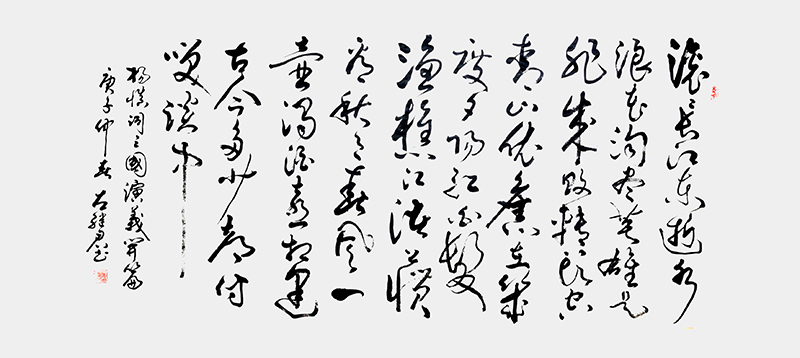 滚滚長江东逝水
浪花淘尽英雄是
非成败转头空
青山依旧在几
度夕阳红白髮
渔樵江渚上惯
看秋月春风一
壶浊酒喜相逢
古今多少都付
笑谈中
杨慎词三國演義开篇
庚子仲春